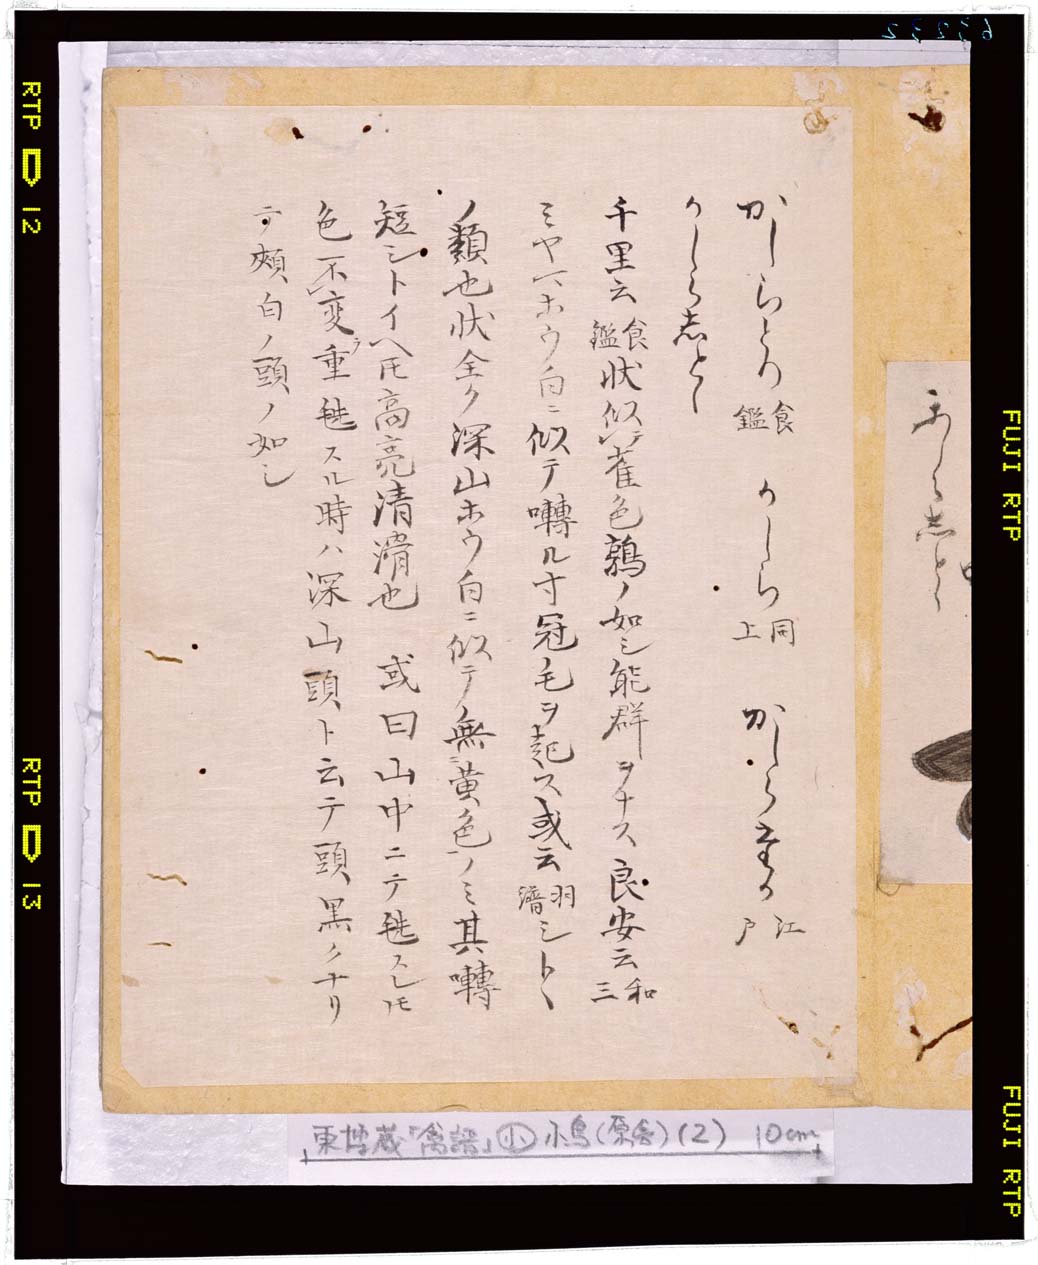 かしらとり 食鑑 かしら 同上 かしらたか 江戸
かしらしとゝ
千里云 食鑑 状似雀色鶉ノ如シ能群ヲナス良安云 和三
ミヤマホウ白ニ似テ囀ル寸冠毛ヲ起ス或云 羽 シトヽ
ノ類也状全ク深山ホウ白ニ似テ無黄色ノミ其囀
短シトイヘ𪜈高亮清滑也 或曰山中ニテ毨スレ𪜈
色不変重毨スル時ハ深山頭ト云テ頭黒クナリ
テ頬白ノ頭ノ如シ
かしらしとゝ
東博蔵「禽譜」小 小鳥(原舎)(2) 10cm
63232
RTP 12
RTP 13
FUJI RTP
FUJI RTP